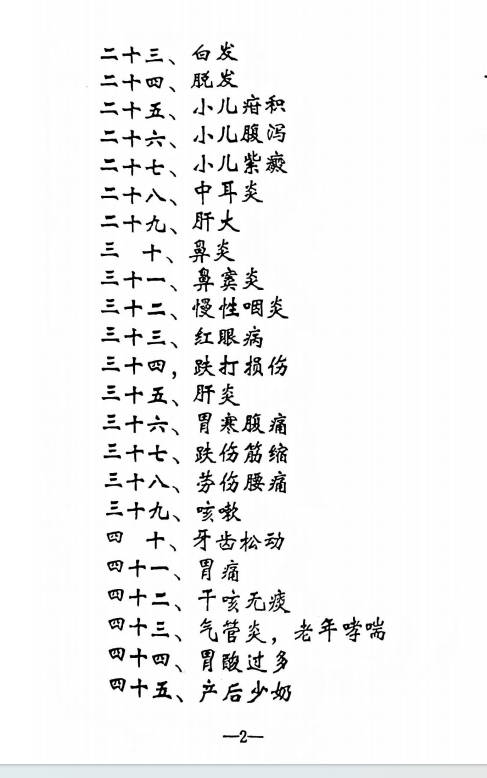 二十三、白发
二十四、脱发
二十五、小儿疳积
二十六、小儿腹泻
二十七、小儿紫癜
二十八、中耳炎
二十九、肝大
三 十、鼻炎
三十一、鼻窦炎
三十二、慢性咽炎
三十三、红眼病
三十四，跌打损伤
三十五、肝炎
三十六、胃寒腹痛
三十七、跌伤筋缩
三十八、劳伤腰痛
三十九、咳嗽
四 十、牙齿松动
四十一、胃痛
四十二、干咳无痰
四十三、气管炎，老年哮喘
四十四、胃酸过多
四十五、产后少奶
—2—